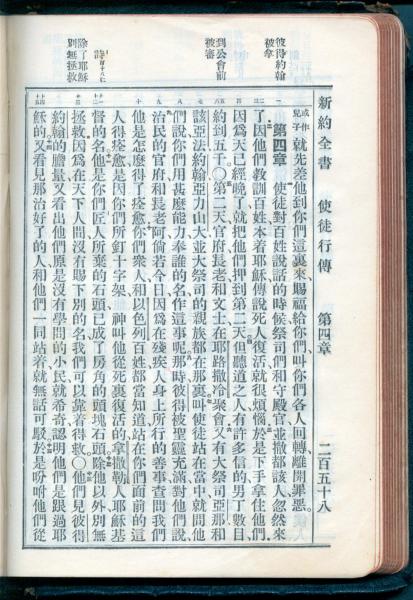 新約全書 使徒行傳 第四章 二百五十八
或作兒子
就先差他到你們這裏來賜福給你們叫你們各人回轉離開罪惡
第四章 使徒對百姓說話的時候祭司們和守殿官並撒都該人忽然來
了因他們教訓百姓本着耶穌傳說死人復活就很煩惱於是下手拿住他們
因爲天已經晚了就把他們押到第二天但聽道之人有許多信的男丁數目
約到五千〇第二天官府長老和文士在耶路撒冷聚會又有大祭司亞那和
該亞法約翰亞力山大並大祭司的親族都在那裏叫使徒站在當中就問他
們說你們用甚麼能力奉誰的名作這事呢那時彼得被聖靈充滿對他們說
治民的官府和長老阿倘若今日因爲在殘疾人身上所行的善事查問我們
他是怎麼得了痊愈你們衆人和以色列百姓都當知道站在你們面前的這
人得痊愈是因你們所釘十字架 神叫他從死裏復活的拿撒勒人耶穌基
督的名他是你們匠人所棄的石頭已成了房角的頭塊石頭除他以外別無
拯救因爲在天下人間沒有賜下別的名我們可以靠着得救〇他們見彼得
約翰的膽量又看出他們原是沒有學問的小民就希奇認明他們是跟過耶
穌的又看見那治好了的人和他們一同站着就無話可駁於是吩咐他們從
彼得約翰
被拿
到公會前
被審
除了耶穌
別無拯救